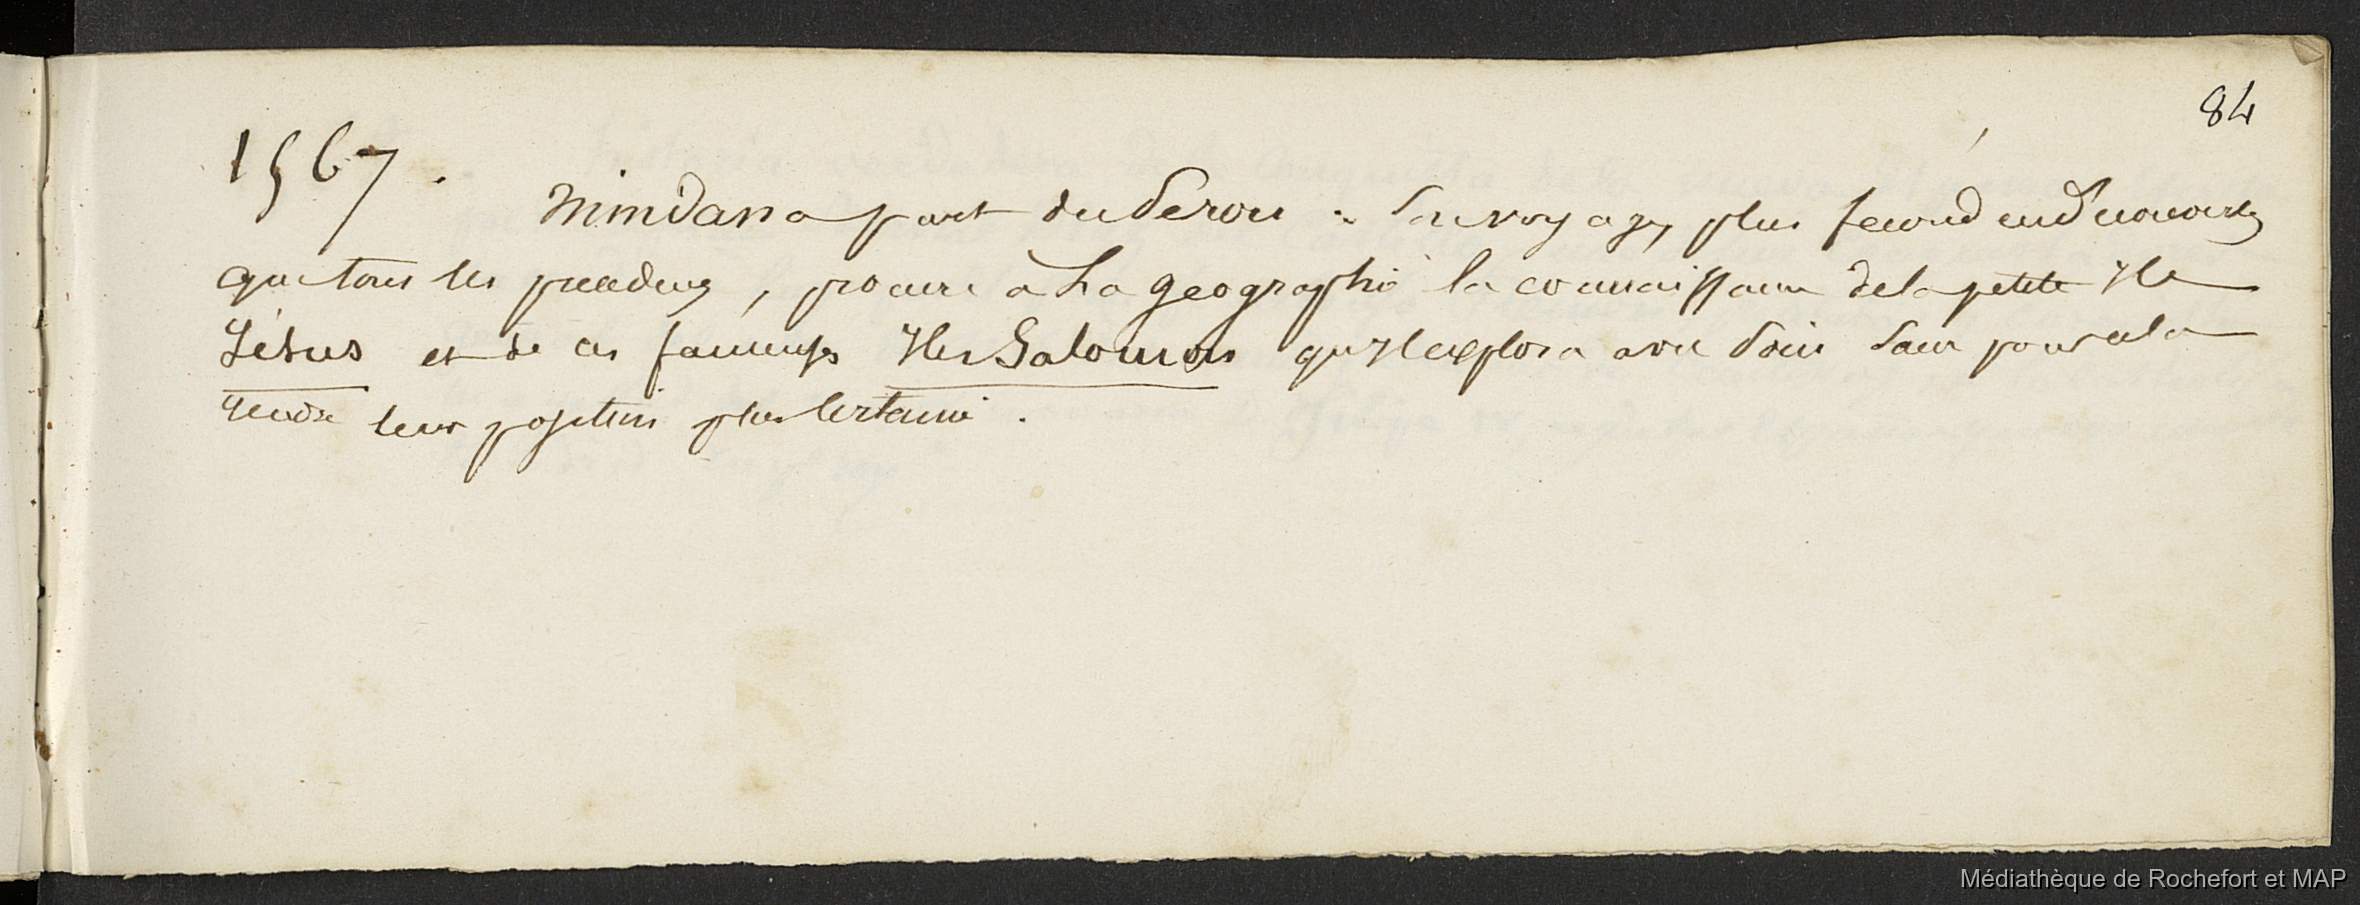 84
1567.
Mindana part du Perou. Son voyage, plus fecond en découvertes
que tous les precedens, procure a La geographie la connaissance de la petite Ile
Jésus et de ces fameuses Iles Salomon qu'Il explora avec soin sans pour cela
rendre leur position plus Certaine.
Médiathèque de Rochefort et MAP